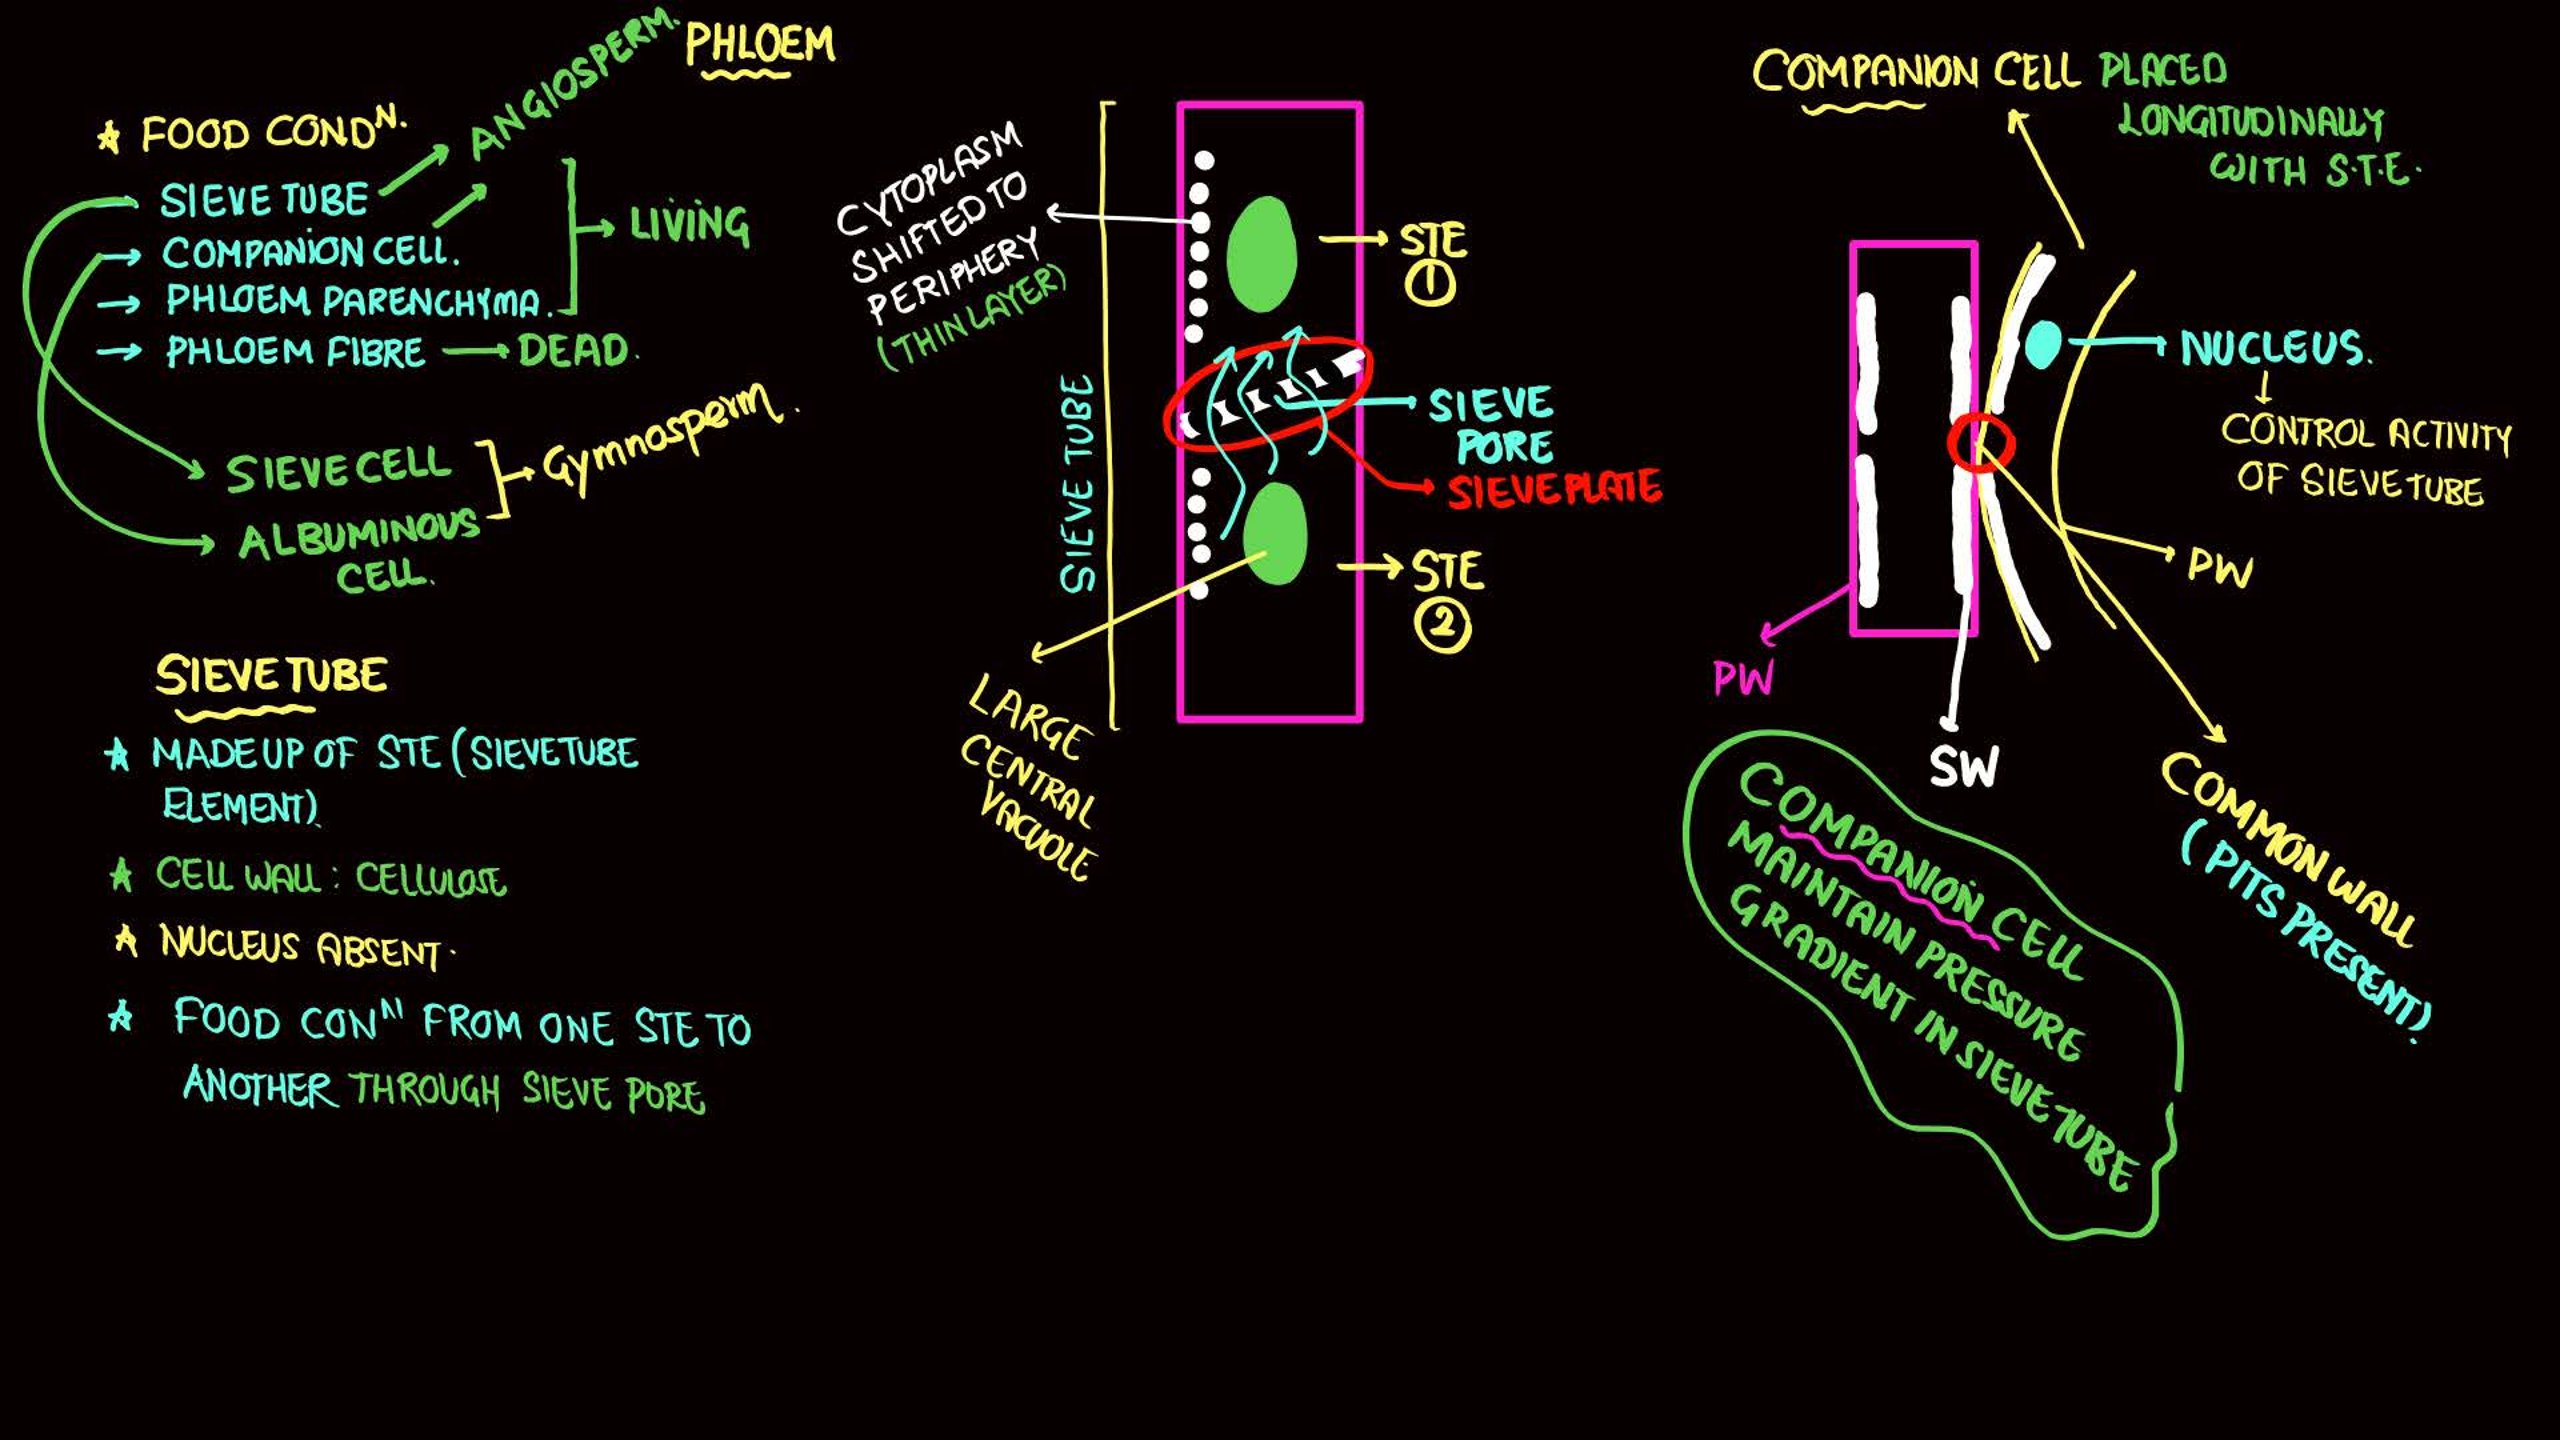 PHLOEM
★ FOOD CONDᴺ.
ANGIOSPERM.
SIEVE TUBE
→ COMPANION CELL.
→ PHLOEM PARENCHYMA.
LIVING
→ PHLOEM FIBRE → DEAD.
SIEVE CELL
ALBUMINOUS
CELL.
Gymnosperm.
SIEVE TUBE
★ MADE UP OF STE (SIEVE TUBE
ELEMENT)
★ CELL WALL : CELLULOSE
★ NUCLEUS ABSENT.
★ FOOD CONᴺ FROM ONE STE TO
ANOTHER THROUGH SIEVE PORE
CYTOPLASM
SHIFTED TO
PERIPHERY
(THIN LAYER)
SIEVE TUBE
STE
①
SIEVE
PORE
SIEVE PLATE
STE
②
LARGE
CENTRAL
VACUOLE
COMPANION CELL PLACED
LONGITUDINALLY
WITH S.T.E.
NUCLEUS.
↓
CONTROL ACTIVITY
OF SIEVE TUBE
PW
PW
SW
COMMON WALL
(PITS PRESENT)
COMPANION CELL
MAINTAIN PRESSURE
GRADIENT IN SIEVE TUBE